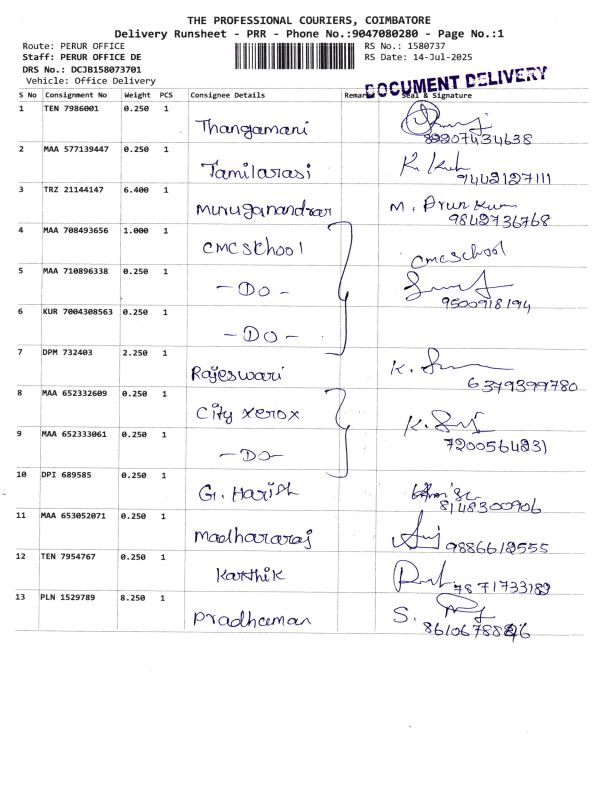 THE PROFESSIONAL COURIERS, COIMBATORE
Delivery Runsheet - PRR - Phone No.:9047080280 - Page No.:1
Route: PERUR OFFICE RS No.: 1580737
Staff: PERUR OFFICE DE RS Date: 14-Jul-2025
DRS No.: DCJB158073701
Vehicle: Office Delivery
DOCUMENT DELIVERY
S No Consignment No Weight PCS Consignee Details Remarks Seal & Signature
1 TEN 7986001 0.250 1 Thangamani
2 MAA 577139447 0.250 1 Tamilarasi 9442127111
3 TRZ 21144147 6.400 1 Muruganandran M. Arun Kumar 9842736768
4 MAA 708493656 1.000 1 CMC School CMC School
5 MAA 710896338 0.250 1 -DO- 9500918194
6 KUR 7004308563 0.250 1 -DO-
7 DPM 732403 2.250 1 Rajeswari 6379399780
8 MAA 652332609 0.250 1 City Xerox
9 MAA 652333061 0.250 1 -DO- 7200564231
10 DPI 689585 0.250 1 G. Harish 8148300906
11 MAA 653052071 0.250 1 Madhararaj 9886612555
12 TEN 7954767 0.250 1 Karthik 7871733189
13 PLN 1529789 8.250 1 Pradheeman